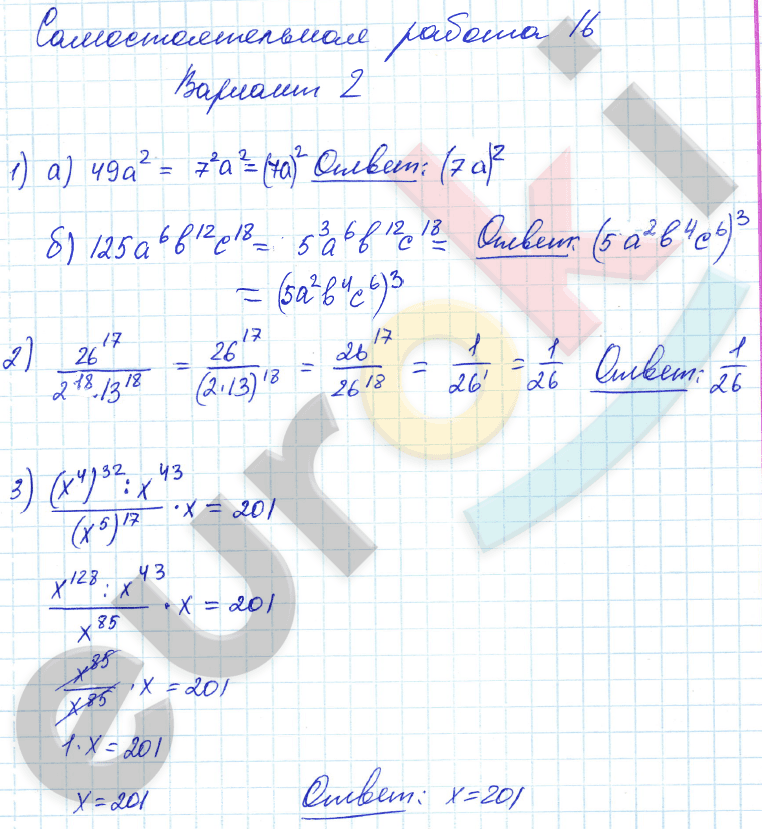 Самостоятельная работа 16
Вариант 2
1) а) 49a² = 7²a² = (7a)² Ответ: (7a)²
б) 125a⁶b¹²c¹⁸ = 5³a⁶b¹²c¹⁸ = Ответ: (5a²b⁴c⁶)³
= (5a²b⁴c⁶)³
2) 26¹⁷/(2¹⁸·13¹⁸) = 26¹⁷/(2·13)¹⁸ = 26¹⁷/26¹⁸ = 1/26¹ = 1/26 Ответ: 1/26
3) ((x⁴)³² : x⁴³)/(x⁵)¹⁷ · x = 201
(x¹²⁸ : x⁴³)/x⁸⁵ · x = 201
x⁸⁵/x⁸⁵ · x = 201
1 · x = 201
x = 201 Ответ: x = 201
euroki